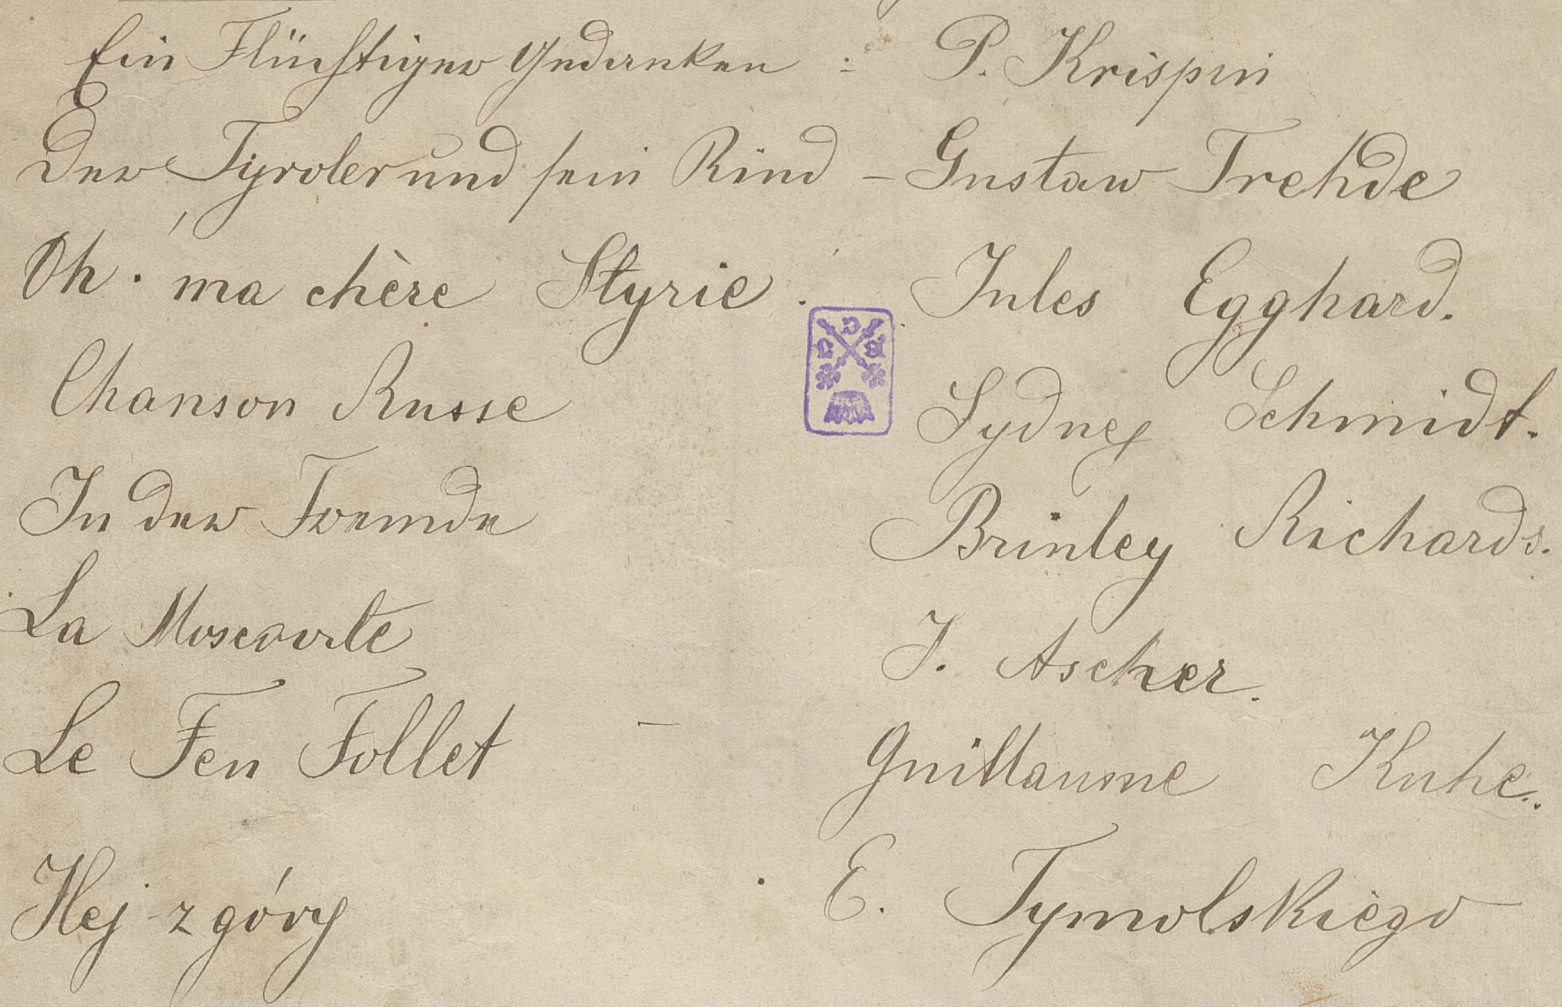 Ein Flüchtiger Gedanken : P. Krispin
Der Tyroler und sein Kind – Gustaw Trehde
Oh! ma chère Styrie. Jules Egghard.
Chanson Russe Sydney Schmidt.
In der Fremde Brinley Richards.
La Moscovite J. Ascher.
Le Feu Follet – Guillaume Kuhe.
Hej z góry . E. Tymolskiègo